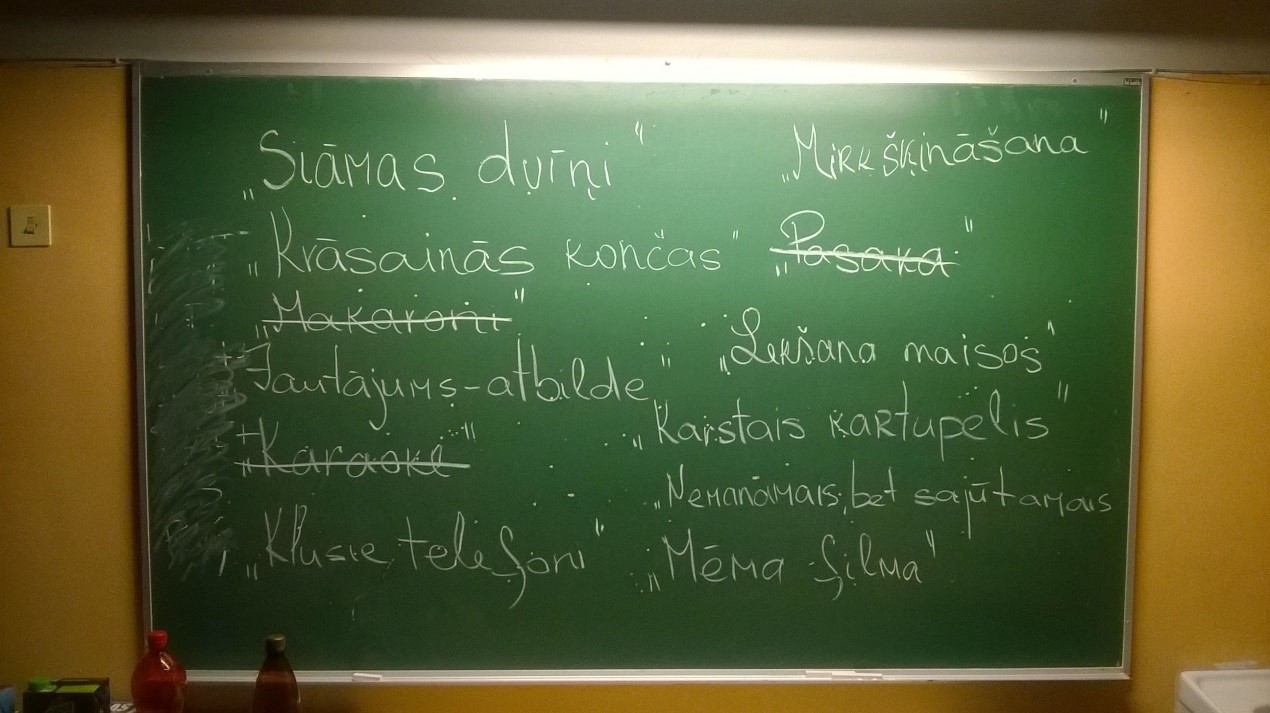 „Siāmas dvīņi"
„Krāsainās končas"
„Makaroni"
Jautājums-atbilde"
„Karaoke"
„Klusie telefoni"
„Mirkšķināšana"
„Pasaka"
„Lekšana maisos"
„Karstais kartupelis"
„Nemanāmais, bet sajūtamais
„Mēma filma"